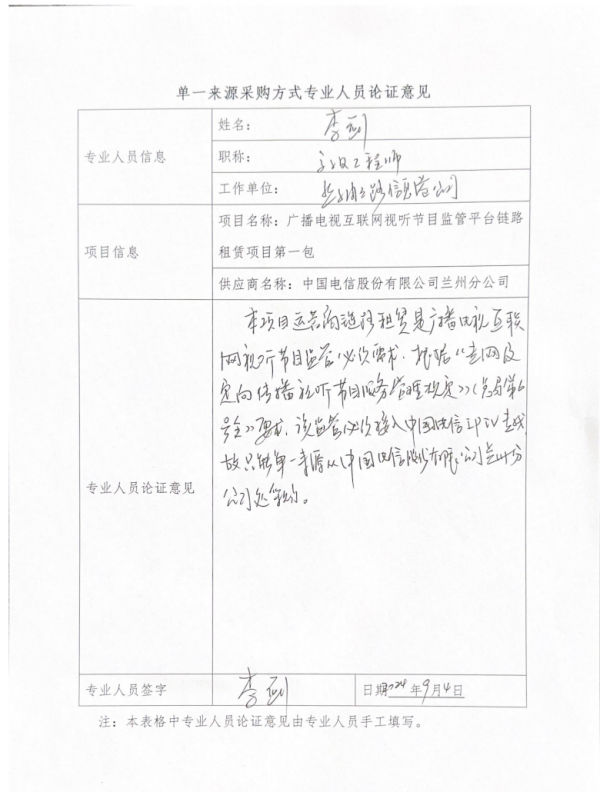 单一来源采购方式专业人员论证意见
专业人员信息
姓名：李剑
职称：工程师
工作单位：公司
项目信息
项目名称：广播电视互联网视听节目监管平台链路
租赁项目第一包
供应商名称：中国电信股份有限公司兰州分公司
专业人员论证意见
本项目链路租赁是广播电视互联
网视听节目监管必须要求，根据《专网及
定向传播视听节目服务管理规定》（总局第6
号令）要求，该监管必须接入中国电信IPTV专线
故只能单一来源从中国电信股份有限公司兰州分
公司处采购。
专业人员签字
李剑
日期2024年9月4日
注：本表格中专业人员论证意见由专业人员手工填写。